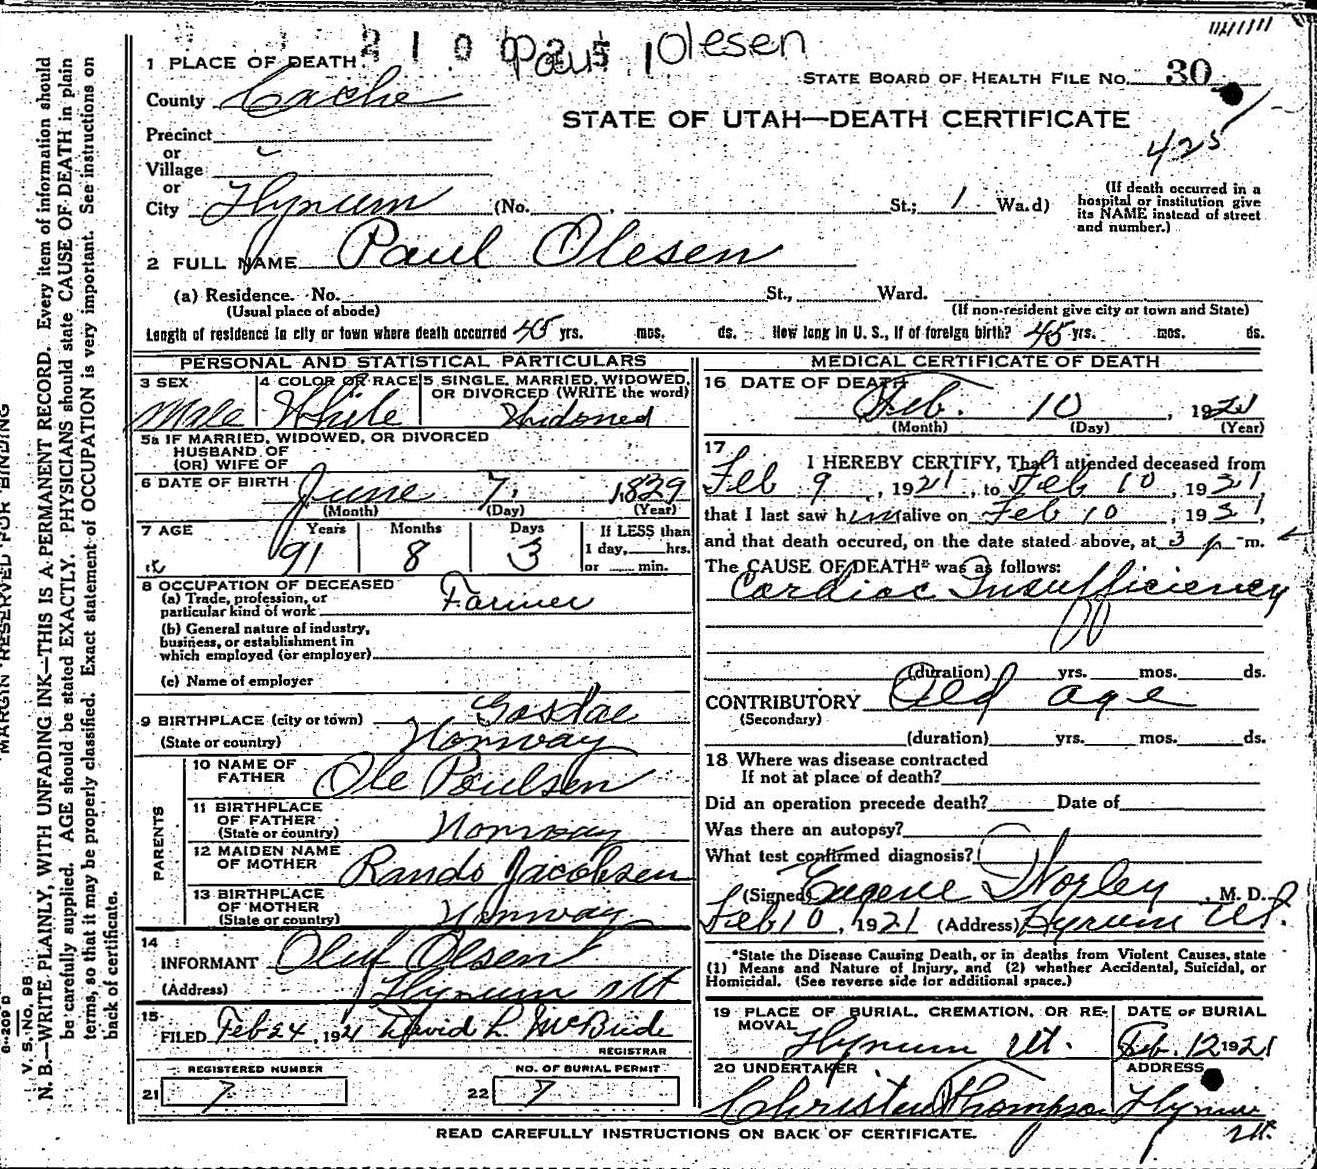 2 1 0 0 2 5 1
Paul Olesen
1 PLACE OF DEATH
STATE BOARD OF HEALTH FILE NO. 30
County Cache
STATE OF UTAH—DEATH CERTIFICATE
425
Precinct
or
Village
or
City Hyrum (No. St.; 1 Ward)
(If death occurred in a
hospital or institution give
its NAME instead of street
and number.)
2 FULL NAME Paul Olesen
(a) Residence. No. St., Ward.
(Usual place of abode) (If non-resident give city or town and State)
Length of residence in city or town where death occurred 45 yrs. mos. ds. How long in U. S., if of foreign birth? 45 yrs. mos. ds.
PERSONAL AND STATISTICAL PARTICULARS
3 SEX
Male
4 COLOR OR RACE
White
5 SINGLE, MARRIED, WIDOWED,
OR DIVORCED (WRITE the word)
Widowed
5a IF MARRIED, WIDOWED, OR DIVORCED
HUSBAND OF
(OR) WIFE OF
6 DATE OF BIRTH June 7, 1829
(Month) (Day) (Year)
7 AGE
Years Months Days
91 8 3
If LESS than
1 day, hrs.
or min.
8 OCCUPATION OF DECEASED
(a) Trade, profession, or
particular kind of work Farmer
(b) General nature of industry,
business, or establishment in
which employed (or employer)
(c) Name of employer
9 BIRTHPLACE (city or town)
(State or country) Norway
PARENTS
10 NAME OF
FATHER Ole Poulsen
11 BIRTHPLACE
OF FATHER
(State or country) Norway
12 MAIDEN NAME
OF MOTHER Rando Jacobsen
13 BIRTHPLACE
OF MOTHER
(State or country) Norway
14
INFORMANT Oluf Olsen
(Address) Hyrum Ut
15
FILED Feb 24, 1921 David L McBride
REGISTRAR
REGISTERED NUMBER
21 7
NO. OF BURIAL PERMIT
22 7
MEDICAL CERTIFICATE OF DEATH
16 DATE OF DEATH
Feb. 10, 1921
(Month) (Day) (Year)
17
I HEREBY CERTIFY, That I attended deceased from
Feb 9, 1921, to Feb 10, 1921
that I last saw him alive on Feb 10, 1921,
and that death occured, on the date stated above, at 3 p m.
The CAUSE OF DEATH* was as follows:
Cardiac Insufficiency
(duration) yrs. mos. ds.
CONTRIBUTORY Old age
(Secondary)
(duration) yrs. mos. ds.
18 Where was disease contracted
If not at place of death?
Did an operation precede death? Date of
Was there an autopsy?
What test confirmed diagnosis?
(Signed) Eugene Worley, M. D.
Feb 10, 1921 (Address) Hyrum Ut.
*State the Disease Causing Death, or in deaths from Violent Causes, state
(1) Means and Nature of Injury, and (2) whether Accidental, Suicidal, or
Homicidal. (See reverse side for additional space.)
19 PLACE OF BURIAL, CREMATION, OR RE-
MOVAL
Hyrum Ut.
DATE OF BURIAL
Feb. 12 1921
20 UNDERTAKER
Thompson
ADDRESS
Hyrum
Ut.
READ CAREFULLY INSTRUCTIONS ON BACK OF CERTIFICATE.
MARGIN RESERVED FOR BINDING
V. S. NO. 98
N. B.—WRITE PLAINLY, WITH UNFADING INK—THIS IS A PERMANENT RECORD. Every item of information should
be carefully supplied. AGE should be stated EXACTLY. PHYSICIANS should state CAUSE OF DEATH in plain
terms, so that it may be properly classified. Exact statement of OCCUPATION is very important. See instructions on
back of certificate.